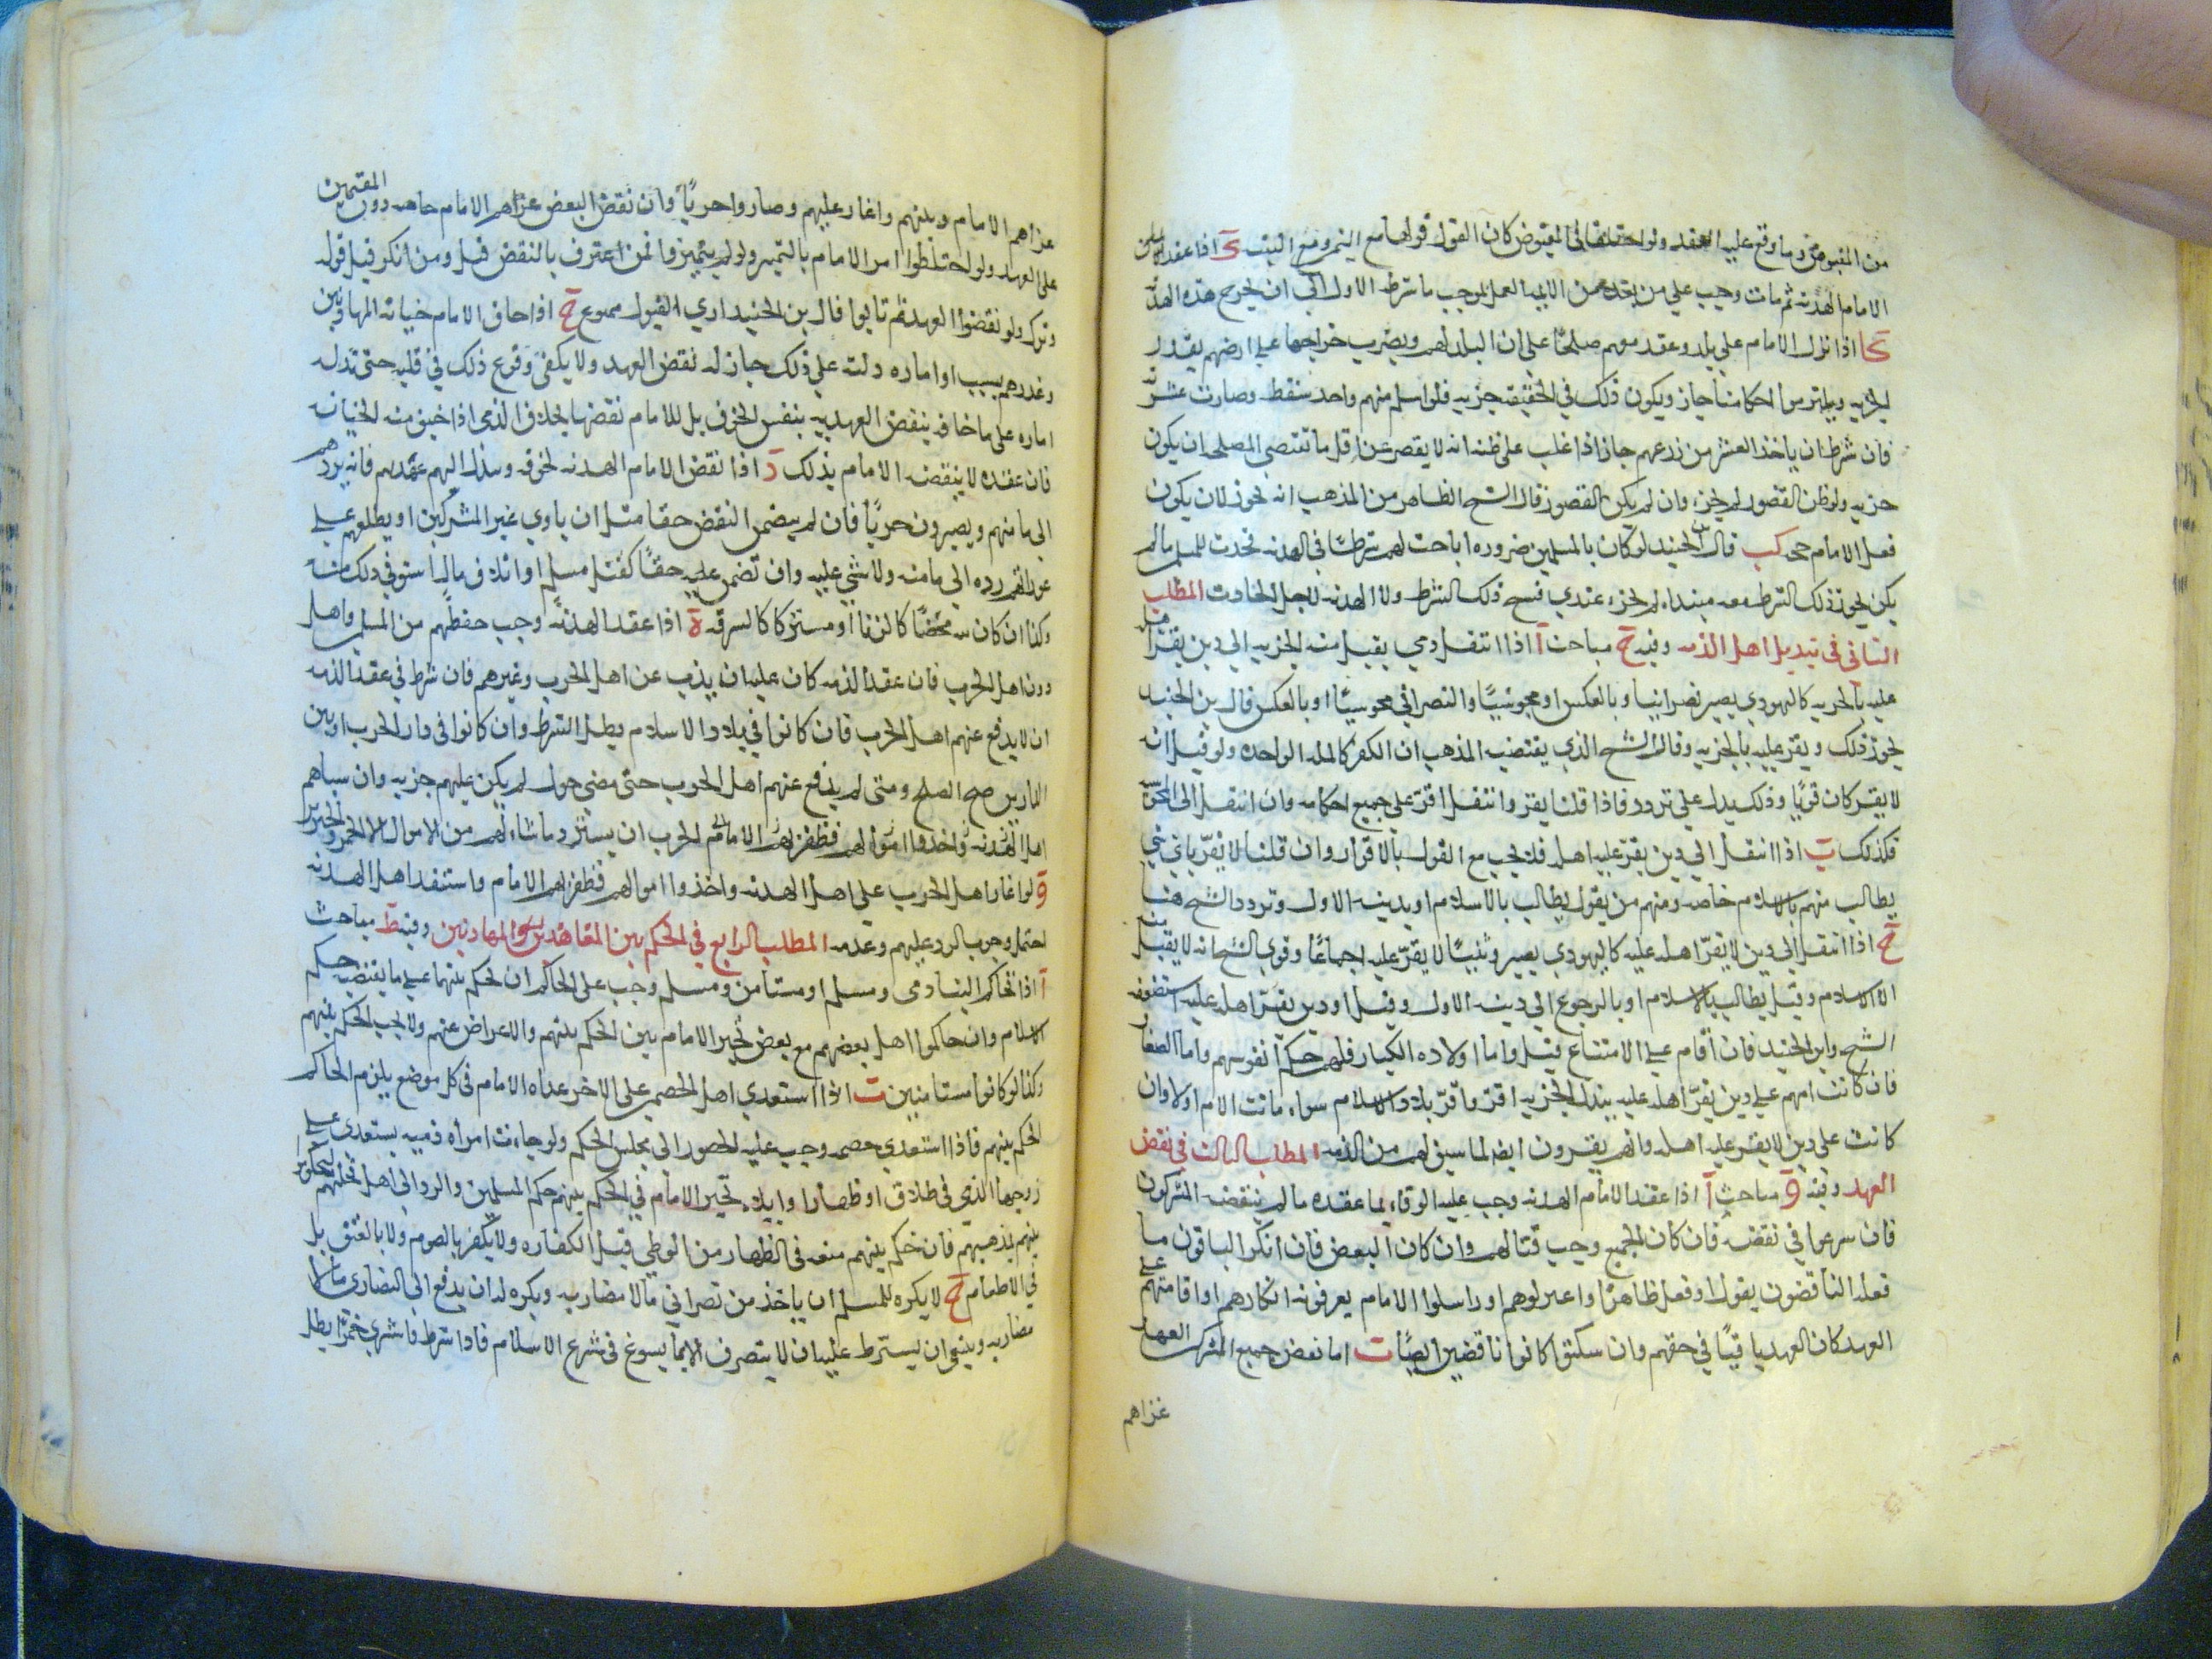 من المقبوض وما وقع عليه العقد ولو اختلفا في المقبوض كان القول قولها مع اليمين ومع البينة ك اذا عقد
الامام الهدنه ثم مات وجب على من بعده من الايمه العمل بموجب ما شرطه الاول الى ان يخرج مدة الهدنه
كا اذا نزل الامام على بلد وعقد معهم صلحا على ان البلد لهم ويضرب خراجها على ارضهم بقدر
الجزيه ويلتزموا احكامنا جاز ويكون ذلك في الحقيقه جزيه فلو اسلم منهم واحد سقطه وصارت عشريه
فان شرط ان ياخذ العشر من زرعهم جاز اذا غلب على ظنه انه لا يقصر عن اقل ما تقتضي المصلحه ان يكون
جزيه ولو ظن القصور لم يجز وان لم يكن القصور قال الشيخ الظاهر من المذهب انه يجوز لان يكون
فعل الامام حجه كب قال ابن الجنيد لو كان بالمسلمين ضروره اباحت لهم شرطا في الهدنه فحدث للمسلمين ما لم
يكن يجوز ذلك الشرط معه مبتدا لم يجز عندي فسخ ذلك الشرط ولا الهدنه لاجل الحادث المطلب
الثاني في تبديل اهل الذمه وفيه ج مباحث ا اذا انتقل ذمي يقبل منه الجزيه الى دين يقر اهله
عليه بالجزيه كاليهودي يصير نصرانيا وبالعكس او مجوسيا والنصراني مجوسيا او بالعكس قال بن الجنيد
يجوز ذلك ويقر عليه بالجزيه وقال الشيخ الذي يقتضيه المذهب ان الكفر كالمله الواحده ولو قيل انه
لا يقر كان قويا وذلك يدل على تردده فاذا قلنا يقر وانتقل اقر على جميع احكامه وان انتقل الى المجوسيه
فكذلك ب اذا انتقل الى دين يقر عليه اهله فلا بحث مع القول بالاقرار وان قلنا لا يقر باي شي
يطالب منهم بالاسلام خاصه ومنهم من يقول يطالب بالاسلام او بدينه الاول وتردد الشيخ هنا
ج اذا انتقل الى دين لا يقر اهله عليه كاليهودي يصير وثنيا لا يقر عليه اجماعا وقوى الشيخ انه لا يقبل منه
الا الاسلام وقيل يطالب بالاسلام او بالرجوع الى دينه الاول وقيل او دين يقر اهله عليه استضعفه
الشيخ وابن الجنيد فان اقام على الامتناع قتل واما اولاده الكبار فلهم حكم انفسهم واما الصغار
فان كانت امهم على دين يقر اهله عليه ببذل الجزيه اقر واقر بلاد الاسلام سواء ماتت الام اولا وان
كانت على دين لا يقر عليه اهله فانهم يقرون ايضا لما سبق لهم من الذمه المطلب الثالث في نقض
العهد وفيه و مباحث ا اذا عقد الامام الهدنه وجب عليه الوفاء بما عقده ما لم ينقضه المشركون
فان سرعوا في نقضه فان كان الجميع وجب قتالهم وان كان البعض فان انكر الباقون ما
فعله الناقضون بقول او فعل ظاهرا واعتزلوهم او راسلوا الامام يعرفونه انكارهم او اقامتهم على
العهد كان العهد باقيا في حقهم وان سكتوا كانوا ناقضين ايضا ب اما نقض جميع المشركين العهد
غزاهم
غزاهم الامام وبيتهم واغار عليهم وصاروا حربيا وان نقض البعض غزاهم الامام خاصه دون المقيمين
على العهد ولو اختلطوا امر الامام بالتميز ولو لم يتميزوا فمن اعترف بالنقض قتل ومن انكر قبل قوله
وترك ولو نقضوا العهد ثم تابوا قال بن الجنيد ارى القبول ممنوع ج اذا خاف الامام خيانه المهادنين
وغدرهم بسبب او اماره دلت على ذلك جاز له نقض العهد ولا يكفي وقوع ذلك في قلبه حتى تدله
اماره على ما خافه ينقض العهد بنفس الخوف بل للامام نقضها بخلاف الذمي اذا خيف منه الخيانه
فان عقده لا ينقضه الامام بذلك د اذا نقض الامام الهدنه لخوفه ونبذ اليهم عهدهم فانه يردهم
الى مامنهم ويصيرون حربيا فان لم يتضمن النقض حقا مثل ان ياوي غير المشركين او يطلعهم على
عوراتهم رده الى مامنه ولا شي عليه وان تضمن عليه حقا كقتل مسلم او اتلاف مال استوفي ذلك منه
وكذا ان كان لله محضا كالزنا او مشتركا كالسرقه ه اذا عقد الهدنه وجب حفظهم من المسلمين واهل
دون اهل الحرب فان عقد الذمه كان عليه ان يذب عن اهل الحرب وغيرهم فان شرط في عقد الذمه
ان لا يدفع عنهم اهل الحرب فان كانوا في بلاد الاسلام بطل الشرط وان كانوا في دار الحرب او بين
الدارين صح الصلح ومتى لم يدفع عنهم اهل الحرب حتى مضى حول لم يكن عليهم جزيه وان سباهم
اهل الهدنه واخذوا اموالهم فظفر لهم الامام الحرب ان يسترد ما شاء لهم من الاموال الا الخمر والخنزير
و لو اغار اهل الحرب على اهل الهدنه واخذوا اموالهم فظفر لهم الامام واستنقذ اهل الهدنه
احتمل وجوب الرد عليهم وعدمه المطلب الرابع في الحكم بين المعاهدين والمهادنين وفيه ط مباحث
ا اذا تحاكم الينا ذمي ومسلم او مستامن ومسلم وجب على الحاكم ان يحكم بينهما على ما يقتضيه حكم
الاسلام وان تحاكموا اهل بعضهم مع بعض تخير الامام بين الحكم بينهم والاعراض عنهم ولا يجب الحكم بينهم
وكذا لو كانوا مستامنين ب اذا استعدى احد الخصمين على الاخر اعداه الامام في كل موضع يلزم الحاكم
الحكم بينهم فاذا استعدي خصمه وجب عليه الحضور الى مجلس الحكم ولو جاءت امراه ذميه يستعدى على
زوجها الذي في طلاق او ظهار او ايلاء تخير الامام في الحكم بينهم حكم المسلمين والرد الى اهل نحلتهم ليحكموا
بينهم بمذهبهم فان حكم بينهم منعه في الظهار من الوطي قبل الكفاره ولا يكفر بالصوم ولا بالعتق بل
في الاطعام ج لا يكره للمسلم ان ياخذ من نصراني مالا مضاربه ويكره له ان يدفع الى النصارى مالا
مضاربه وينبغي ان يشترط عليه ان لا يتصرف الا بما يسوغ في شرع الاسلام فاذا شرط فاشترى خمرا بطل